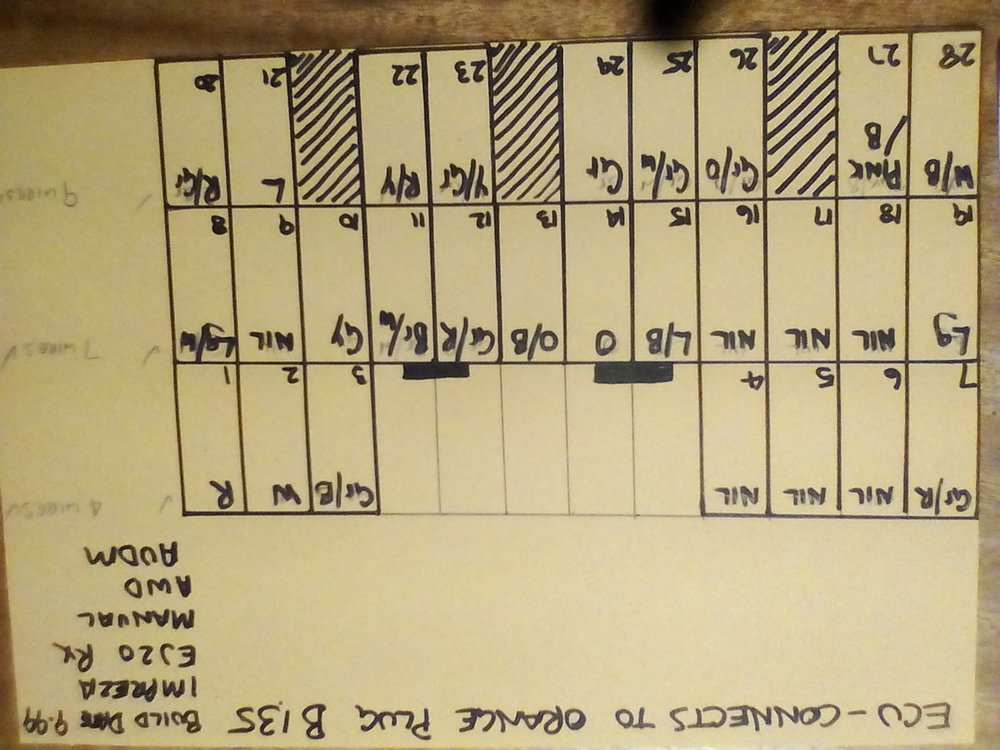 ECU - CONNECTS TO ORANGE PLUG B135 BUILD DATE 9.99
IMPREZA
EJ20 RX
MANUAL
AWD
AUDM
Gr/R NIL NIL NIL Gr/B W R ✓ 4 wires
7 6 5 4 3 2 1
Lg NIL NIL NIL L/B O O/B Gr/R Br/W Gy NIL Lg/W ✓ 7 wires
19 18 17 16 15 14 13 12 11 10 9 8
W/B PINK/B Gr/O Gr/W Gr Y/Gr R/Y L R/Gr ✓ 9 wires
28 27 26 25 24 23 22 21 20